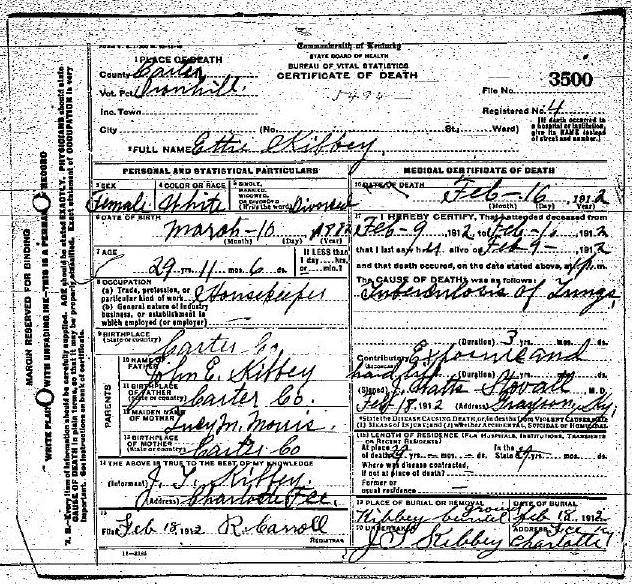 Commonwealth of Kentucky
STATE BOARD OF HEALTH
BUREAU OF VITAL STATISTICS
CERTIFICATE OF DEATH
1 PLACE OF DEATH
County Carter
Vot. Pct. Ironhill
Inc. Town
City (No. St., Ward)
File No. 3500
Registered No. 4
(If death occurred in a hospital or institution, give its NAME instead of street and number.)
2 FULL NAME Ettie Kibbey
PERSONAL AND STATISTICAL PARTICULARS
3 SEX Female
4 COLOR OR RACE White
5 SINGLE, MARRIED, WIDOWED, OR DIVORCED (Write the word) Divorced
6 DATE OF BIRTH March-10 1882
(Month) (Day) (Year)
7 AGE 29 yrs. 11 mos. 6 ds.
If LESS than 1 day, hrs. or min.?
8 OCCUPATION
(a) Trade, profession, or particular kind of work Housekeeper
(b) General nature of industry business, or establishment in which employed (or employer)
9 BIRTHPLACE
(State or country) Carter Co
PARENTS
10 NAME OF FATHER John E. Kibbey
11 BIRTHPLACE OF FATHER
(State or country) Carter Co.
12 MAIDEN NAME OF MOTHER Lucy M. Morris
13 BIRTHPLACE OF MOTHER
(State or country) Carter Co
14 THE ABOVE IS TRUE TO THE BEST OF MY KNOWLEDGE
(Informant) J. T. Kibbey
(Address) Charlotte Fce.
15
Filed Feb 18, 1912 R. Carroll
REGISTRAR
MEDICAL CERTIFICATE OF DEATH
16 DATE OF DEATH Feb-16, 1912
(Month) (Day) (Year)
17 I HEREBY CERTIFY, That I attended deceased from
Feb-9, 1912 to Feb-16, 1912
that I last saw her alive on Feb-9-, 1912
and that death occured, on the date stated above, at m.
The CAUSE OF DEATH was as follows:
Tuberculosis of Lungs
(Duration) 3 yrs. mos. ds.
Contributory Exposure and
hardship
(Duration) yrs. mos. ds.
(Signed) Stovall M. D.
Feb 18, 1912 (Address) Grayson, Ky
State the DISEASE CAUSING DEATH, or, in deaths from VIOLENT CAUSES, state (1) MEANS OF INJURY; and (2) whether ACCIDENTAL, SUICIDAL or HOMICIDAL
18 LENGTH OF RESIDENCE (FOR HOSPITALS, INSTITUTIONS, TRANSIENTS OR RECENT RESIDENTS)
At place of death 29 yrs. mos. ds. In the State 29 yrs. mos. ds.
Where was disease contracted,
if not at place of death?
Former or
usual residence
19 PLACE OF BURIAL OR REMOVAL Kibbey burial ground
DATE OF BURIAL Feb 18, 1912
20 UNDERTAKER J. T. Kibbey
ADDRESS Charlotte Fce
MARGIN RESERVED FOR BINDING
WRITE PLAINLY WITH UNFADING INK—THIS IS A PERMANENT RECORD
N. B.—Every item of information should be carefully supplied. AGE should be stated EXACTLY. PHYSICIANS should state CAUSE OF DEATH in plain terms, so that it may be properly classified. Exact statement of OCCUPATION is very important. See instructions on back of certificate.